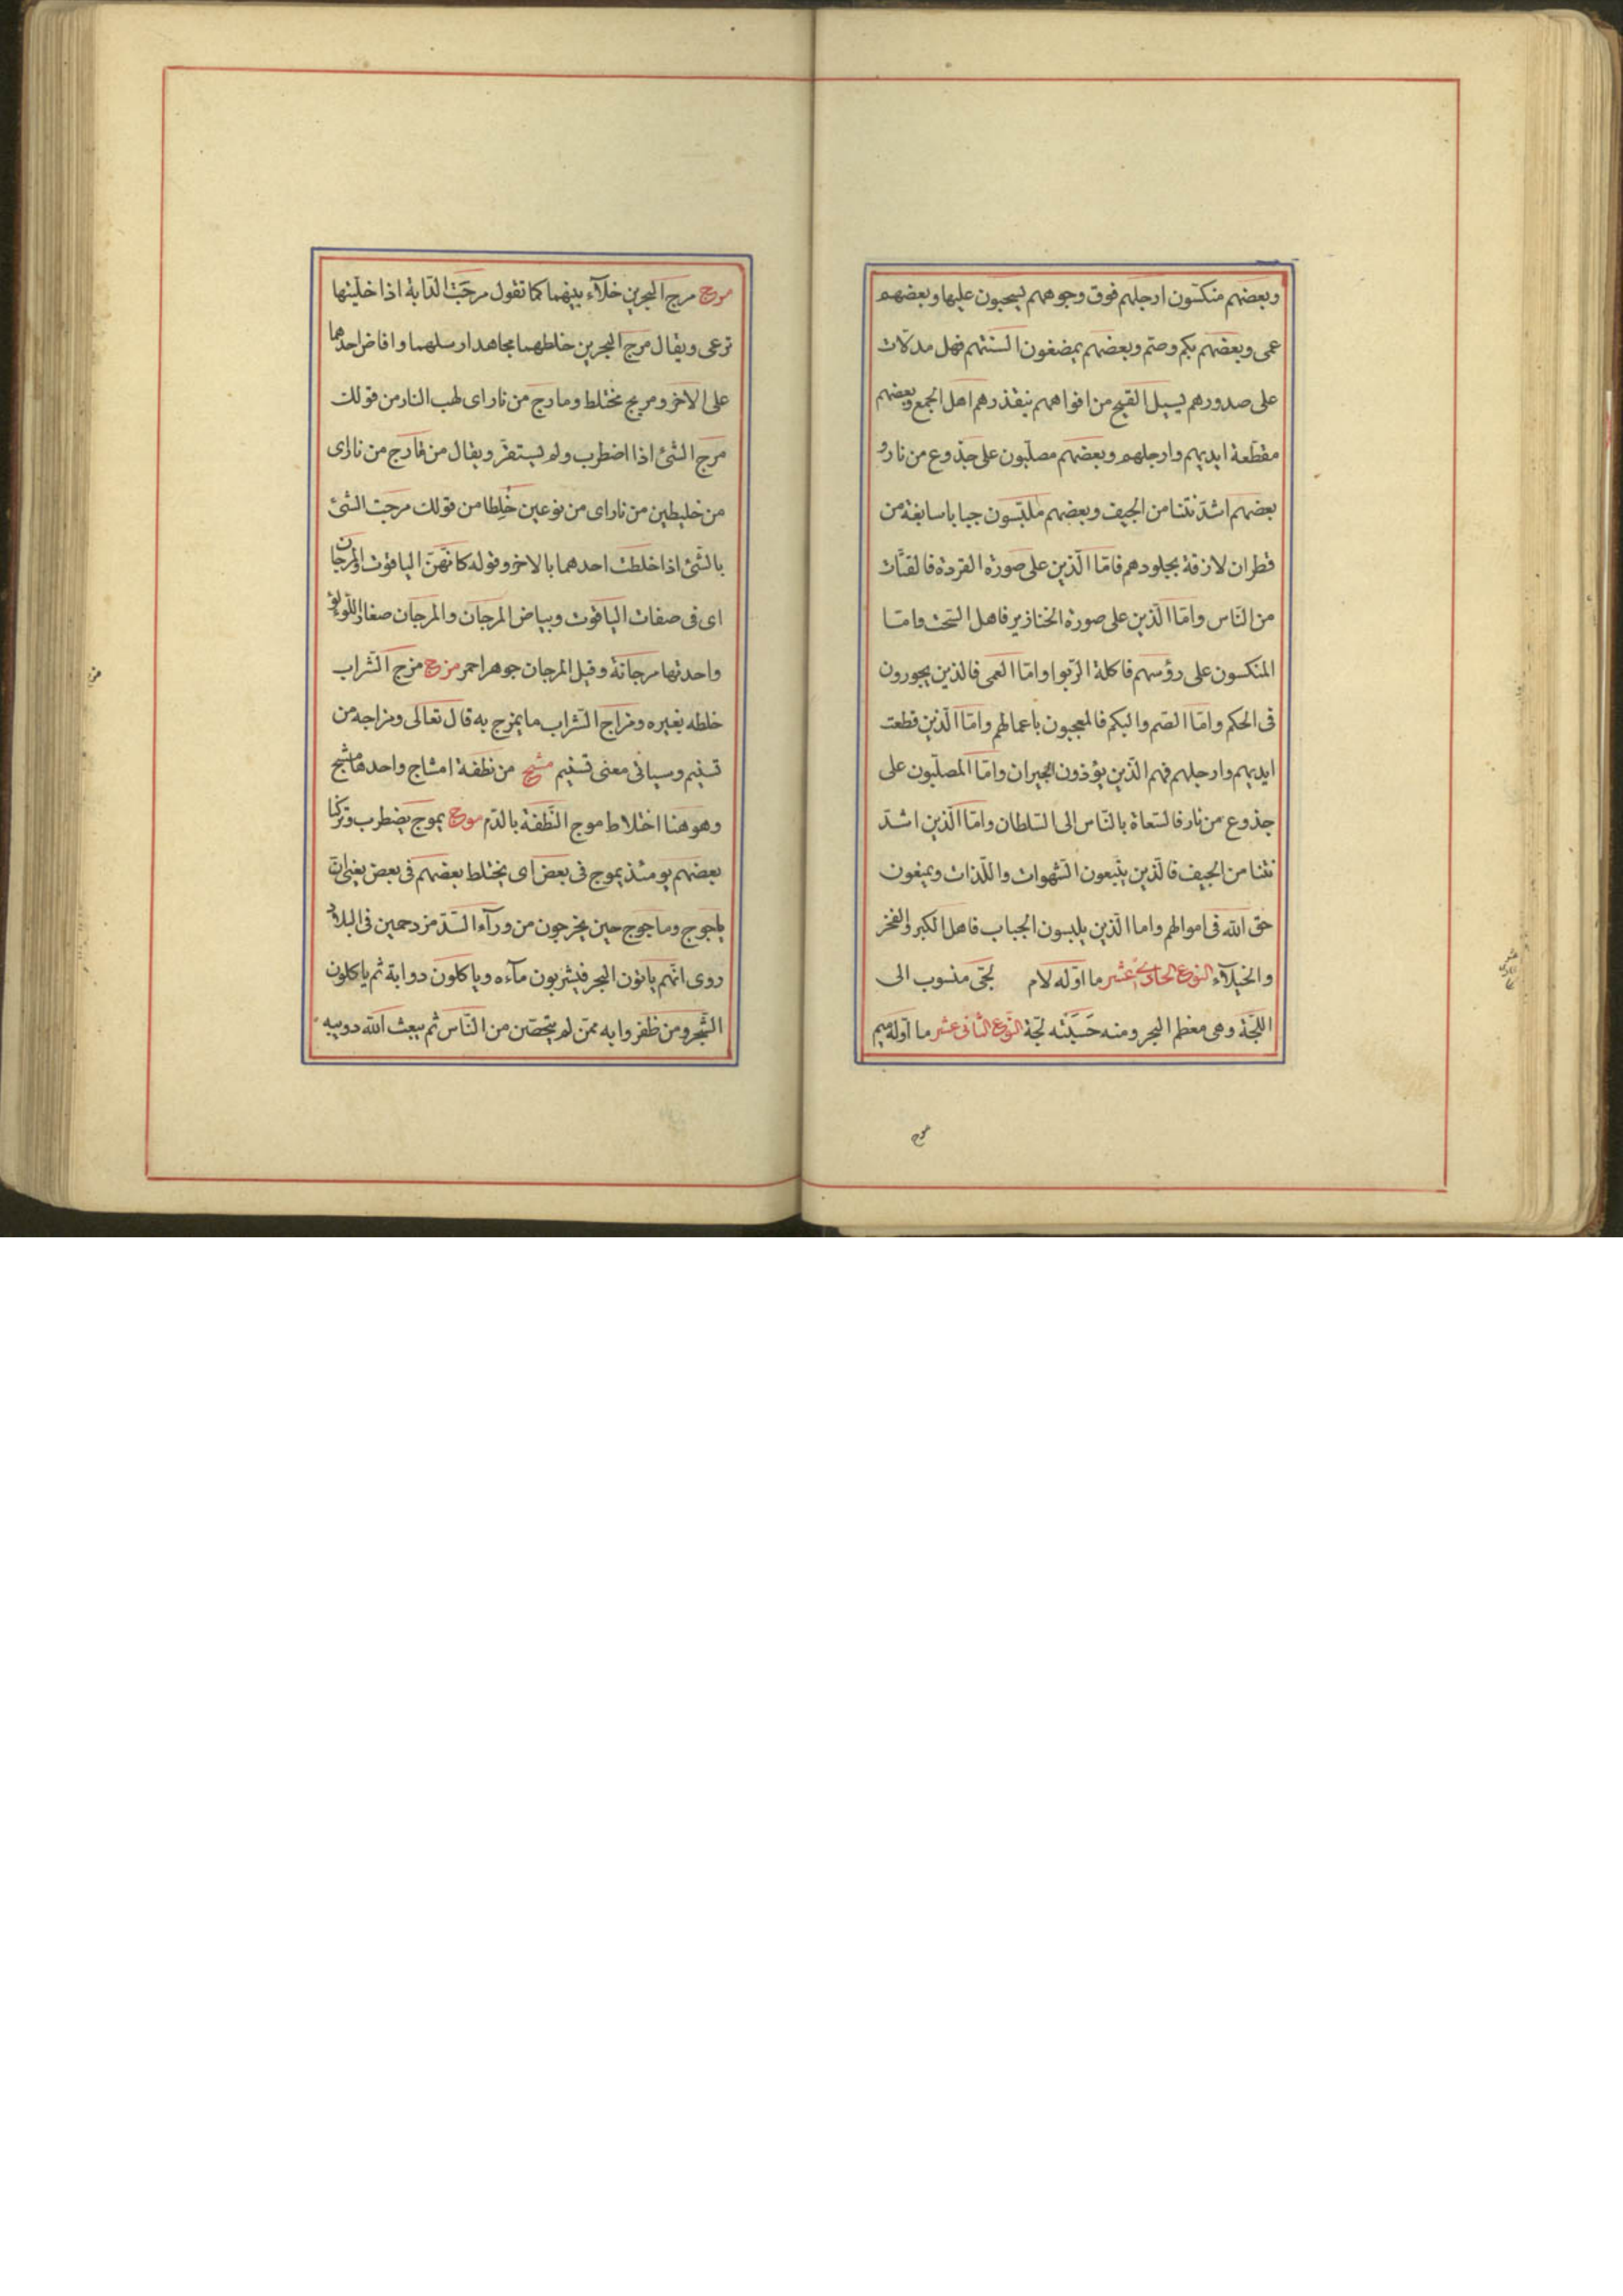 وبعضهم منكسون ارجلهم فوق وجوههم يسحبون عليها وبعضهم
عمى وبعضهم بكم وصم وبعضهم يمضغون السنتهم فهل مدلات
على صدورهم يسيل القيح من افواههم يتقذرهم اهل الجمع وبعضهم
مقطعة ايديهم وارجلهم وبعضهم مصلبون على جذوع من نار و
بعضهم اشد نتنا من الجيف وبعضهم ملبسون جبابا سابغة من
قطران لازقة بجلودهم فامّا الّذين على صورة القردة فالقتّات
من النّاس وامّا الّذين على صورة الخنازير فاهل السّحت وامّا
المنكسون على رؤسهم فاكلة الرّبوا وامّا العمى فالذين يجورون
فى الحكم وامّا الصم والبكم فالمعجبون باعمالهم وامّا الّذين قطعت
ايديهم وارجلهم فهم الّذين يؤذون الجيران وامّا المصلّبون على
جذوع من نار فالسّعاة بالنّاس الى السّلطان وامّا الّذين اشدّ
نتنا من الجيف فالّذين يتّبعون الشّهوات واللّذات ويمنعون
حق الله فى اموالهم واما الّذين يلبسون الجباب فاهل الكبر والفخر
والخيلآء النوع الحادى عشر ما اوّله لام لجّى منسوب الى
اللجّة وهى معظم البحر ومنه حَسِبَتْه لجّة النّوع الثّانى عشر ما اوّله ميم
مرج مرج البحرين خلآء بينهما كما تقول مرجت الدّابة اذا خلّيتها
ترعى ويقال مرج البحرين خلطهما مجاهد ارسلهما وافاض احدهما
على الاخر ومريج مختلط ومارج من نار اى لهب النار من قولك
مرج الشئ اذا اضطرب ولم يستقرّ ويقال من مارج من نار اى
من خليطين من نار اى من نوعين خُلِطا من قولك مرجت الشئ
بالشّئ اذا خلطت احدهما بالاخر وقوله كانّهنّ الياقوت والمرجان
اى فى صفات الياقوت وبياض المرجان والمرجان صغار اللّؤلؤ
واحدتها مرجانة وقيل المرجان جوهر احمر مزج مزج الشّراب
خلطه بغيره ومزاج الشّراب ما يمزج به قال تعالى ومزاجه من
تسنيم وسياتى معنى تسنيم مشج من نطفة امشاج واحدها مشج
وهو هنا اختلاط موج النّطفة بالدّم موج يموج يضطرب وتركنا
بعضهم يومئذ يموج فى بعض اى يختلط بعضهم فى بعض يعنى انّ
ياجوج وماجوج حين يخرجون من ورآء السّدّ مزدحمين فى البلاد
روى انّهم يأتون البحر فيشربون مآءه وياكلون دوابة ثم ياكلون
الشّجر ومن ظفروا به ممّن لم يتحصّن من النّاس ثم يبعث الله دويبه